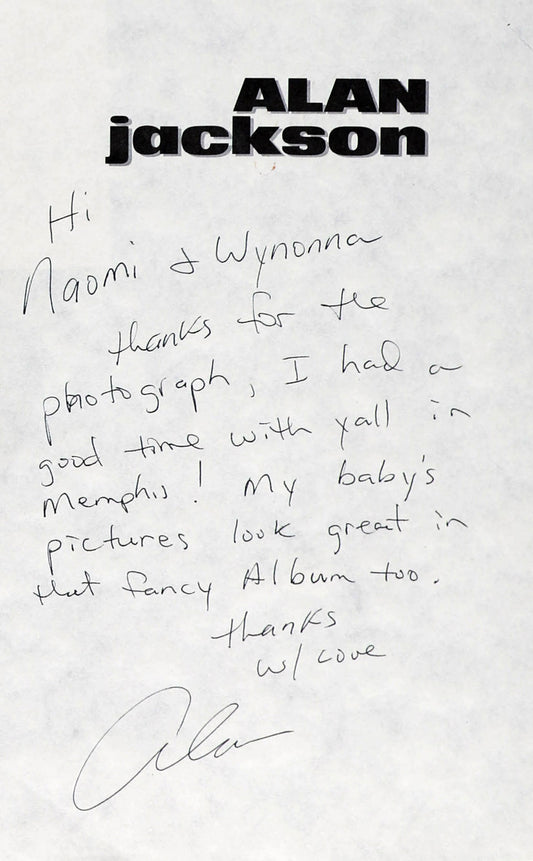 ALAN
jackson
Hi
Naomi & Wynonna
thanks for the
photograph, I had a
good time with yall in
Memphis! My baby's
pictures look great in
that fancy Album too.
thanks
w/ love
Alan